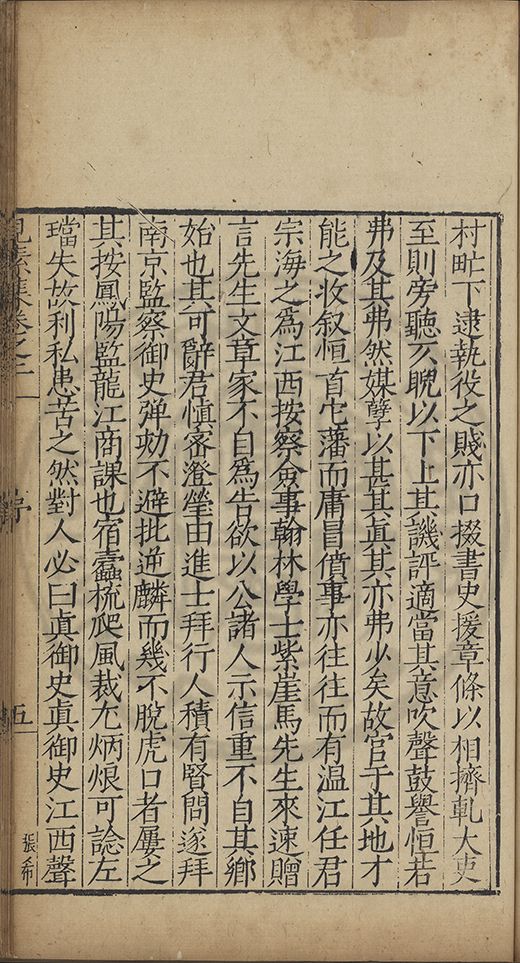 村甿下逮執役之賤亦口掇書史援章條以相擠軋大吏
至則旁聽仄睨以下上其譏評適當其意吹聲鼓譽恒若
弗及其弗然媒孽以甚其眞其亦弗少矣故官于其地才
能之收叙恒首它藩而庸冒僨事亦往往而有温江任君
宗海之爲江西按察僉事翰林學士紫崖馬先生來速贈
言先生文章家不自爲告欲以公諸人示信重不自其鄉
始也其可辭君愼密澄瑩由進士拜行人積有賢問遂拜
南京監察御史弹劾不避批逆麟而幾不脫虎口者屢之
其按鳳陽監龍江商課也宿蠹梳爬風裁尤炳烺可諗左
璫失故利私患苦之然對人必曰眞御史眞御史江西聲
見素集卷之三
序
五
張希